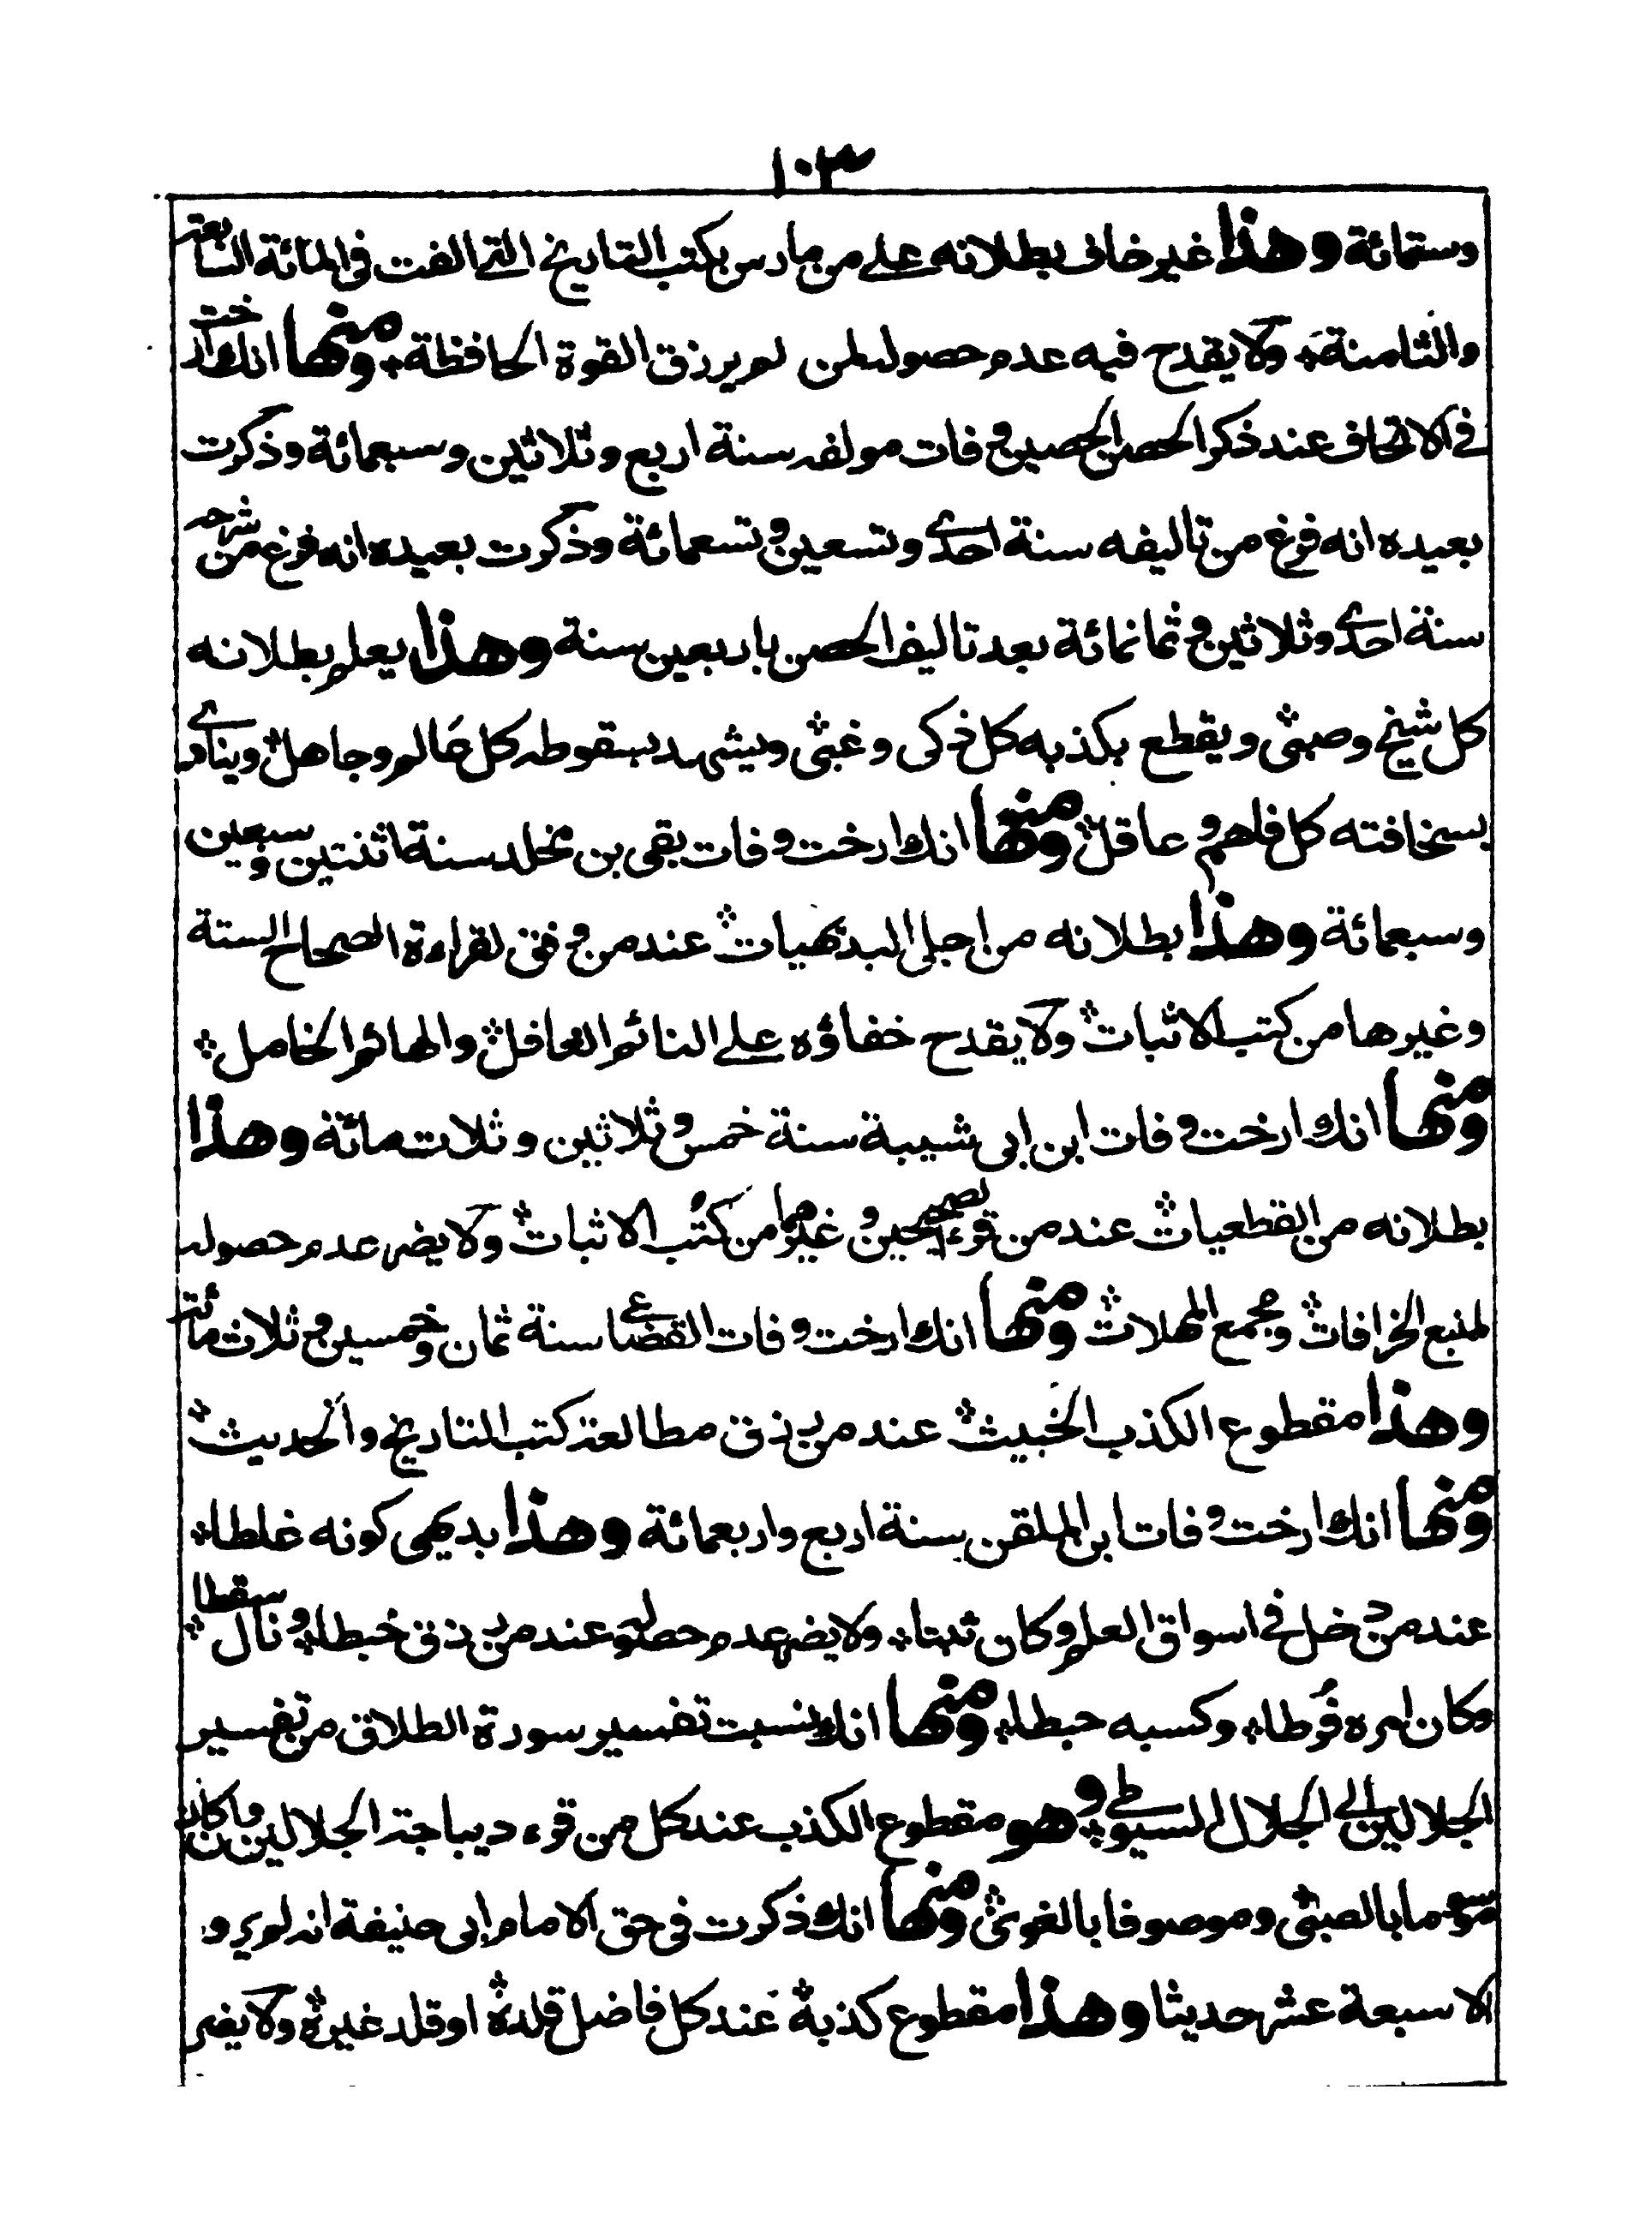 ١٠٣
وستمائة وهذا غير خاف بطلانه على من مارس بكتب التاريخ التى الفت فى المائة السابعة
والثامنة ولا يقدح فيه عدم حصوله لمن لم يرزق القوة الحافظة ومنها انك ارخت
فى الاتحاف عند ذكر الحصن الحصين وفات مولفه سنة اربع وثلاثين وسبعمائة وذكرت
بعيده انه فرغ من تاليفه سنة احدى وتسعين وتسعمائة وذكرت بعيده انه فرغ من شرحه
سنة احدى وثلاثين وثمانمائة بعد تاليف الحصن باربعين سنة وهذا يعلم بطلانه
كل شيخ وصبى ويقطع بكذبه كل ذكى وغبى ويشهد بسقوطه كل عالم وجاهل وينادى
بسخافته كل فاهم وعاقل ومنها انك ارخت وفات بقى بن مخلد سنة اثنتين وسبعين
وسبعمائة وهذا بطلانه من اجلى البديهيات عند من وفق لقراءة الصحاح الستة
وغيرها من كتب الاثبات ولا يقدح خفاؤه على النائم الغافل والهائم الخامل
ومنها انك ارخت وفات ابن ابى شيبة سنة خمس وثلاثين وثلاث مائة وهذا
بطلانه من القطعيات عند من قرء الصحيحين وغيرهما من كتب الاثبات ولا يضر عدم حصوله
لمنبع الخرافات ومجمع المهلات ومنها انك ارخت وفات القضاعى سنة ثمان وخمسين وثلاث مائة
وهذا مقطوع الكذب الخبيث عند من رزق مطالعة كتب التاريخ والحديث
ومنها انك ارخت وفات ابن الملقن سنة اربع واربعمائة وهذا بديهى كونه غلطا
عند من دخل فى اسواق العلم وكان ثبتا ولا يضر عدم حصوله عند من رزق خبطا ونال سقطا
وكان امره فرطا وكسبه حبطا ومنها انك نسبت تفسير سورة الطلاق من تفسير
الجلالين الى الجلال السيوطى وهو مقطوع الكذب عند كل من قرء ديباجة الجلالين وما كان
موسوما بالصبى وموصوفا بالغوى ومنها انك ذكرت فى حق الامام ابى حنيفة انه لم يرو
الا سبعة عشر حديثا وهذا مقطوع كذبه عند كل فاضل قلده او قلد غيره ولا يضر